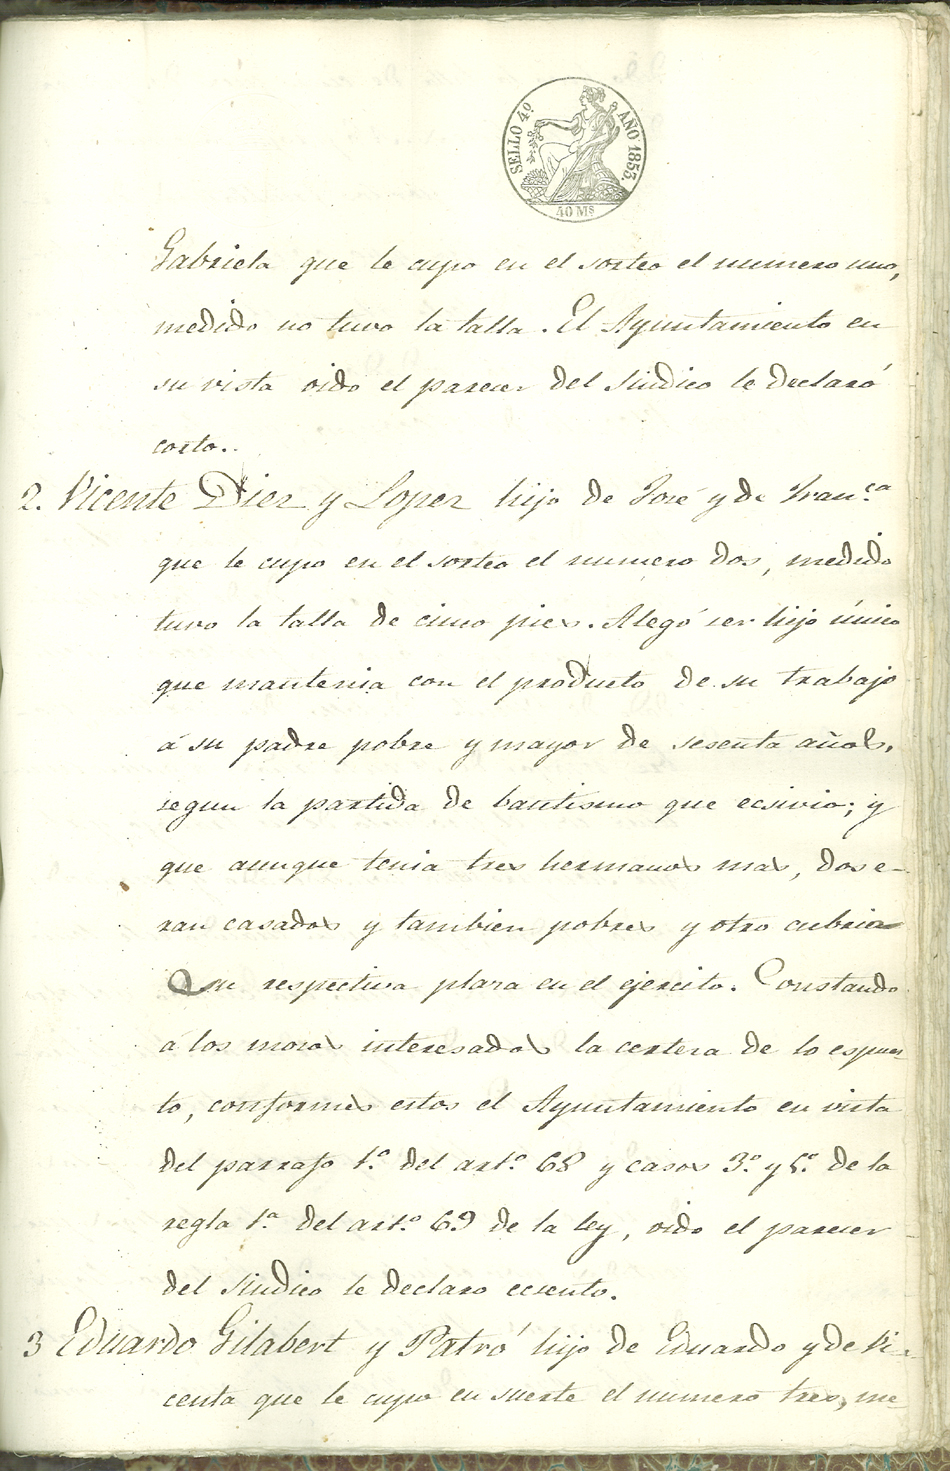 SELLO 4º AÑO 1853.
40 Mˢ
Gabriela que le cupo en el sorteo el numero uno,
medido no tuvo la talla. El Ayuntamiento en
su vista oido el parecer del Sindico le declaró
corto.
2. Vicente Diez y Lopez hijo de José y de Fran.ᶜᵃ
que le cupo en el sorteo el numero dos, medido
tuvo la talla de cinco pies. Alegó ser hijo único
que mantenia con el producto de su trabajo
á su padre pobre y mayor de sesenta años,
segun la partida de bautismo que ecsivio; y
que aunque tenia tres hermanos mas, dos e-
ran casados y tambien pobres y otro cubria
su respectiva plaza en el ejercito. Constando
á los mozos interesados la certeza de lo espues-
to, conformes estos el Ayuntamiento en vista
del parrafo 1.º del art.º 68 y casos 3.º y 5.º de la
regla 1.ª del art.º 69 de la ley, oido el parecer
del Sindico le declaro ecsento.
3 Eduardo Gilabert y Patró hijo de Eduardo y de Vi-
centa que le cupo en suerte el numero tres, me-